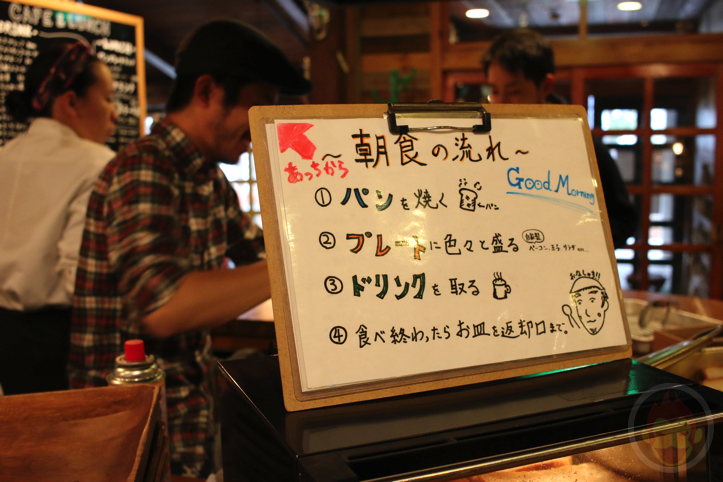 CAFE & LUNCH
あっちから
～朝食の流れ～
Good Morning
① パンを焼く
←パン
② プレートに色々と盛る
ベーコン、玉子、サラダ etc...
③ ドリンクを取る
④ 食べ終わったらお皿を返却口まで。